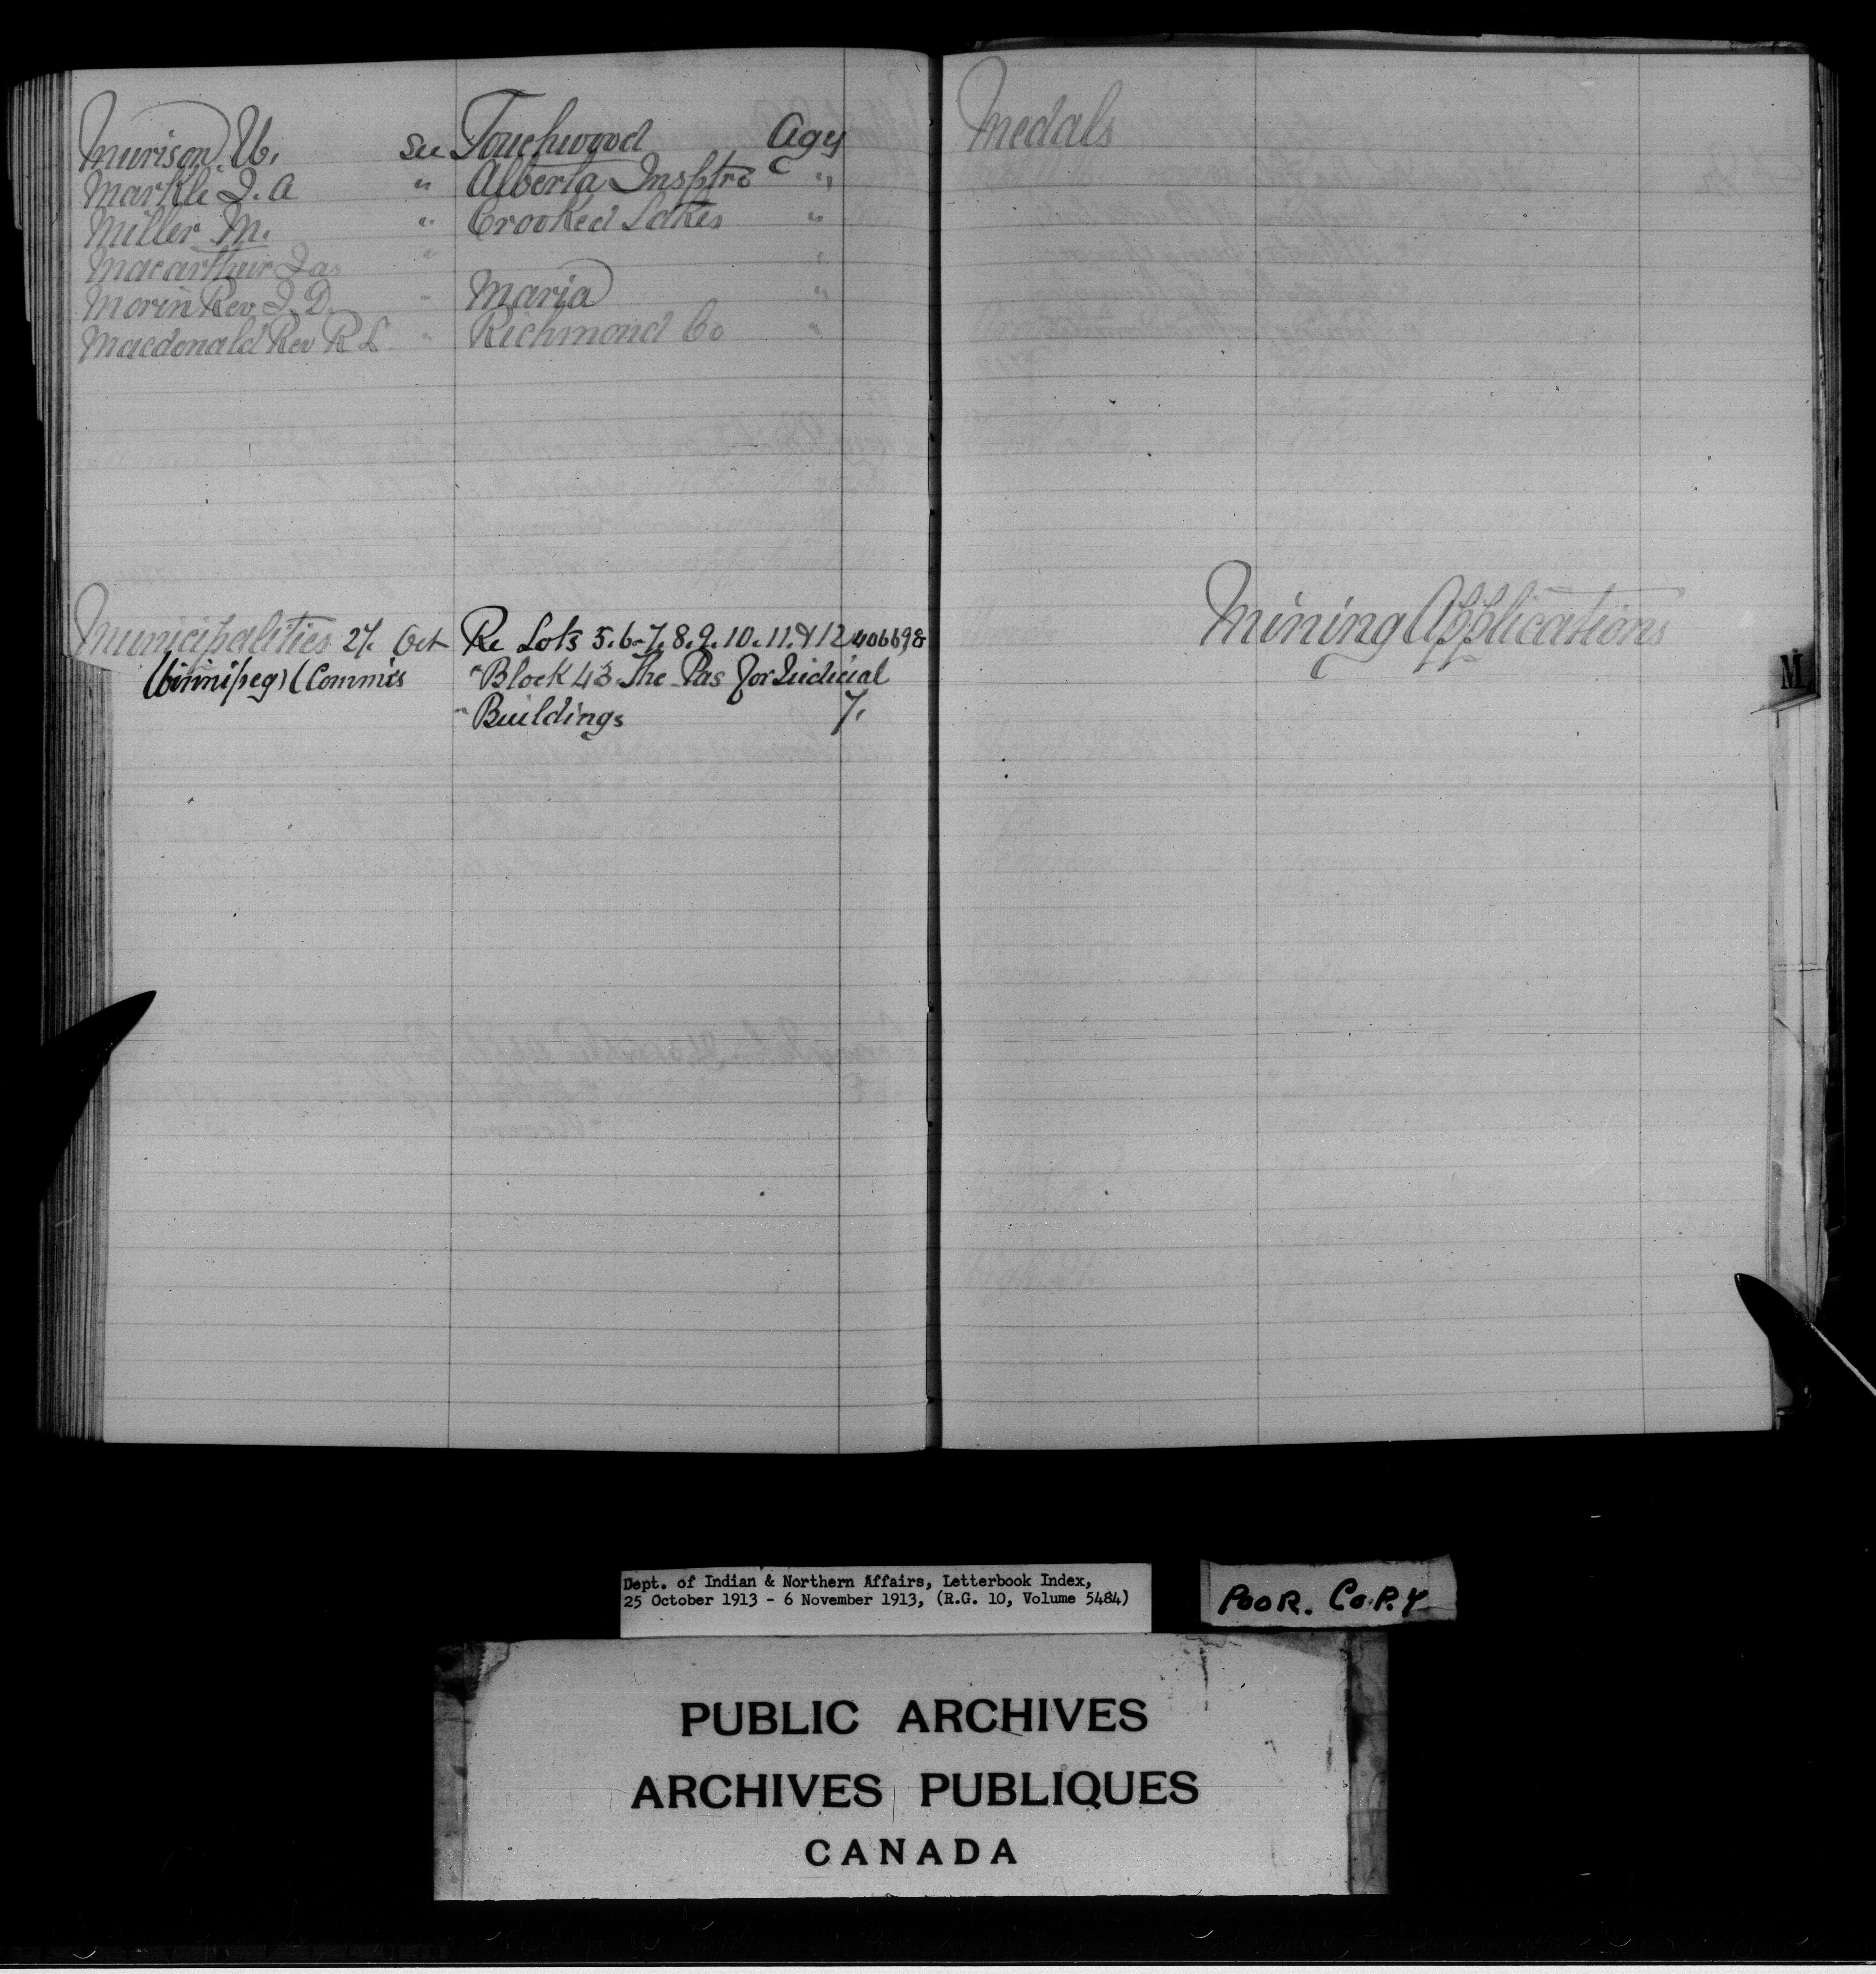 Murison W. See Touchwood Agcy
Markle J. A " Alberta Insptre "
Miller M. " Crooked Lakes "
Macarthur Jas " "
Morin Rev J. D. " Maria "
Macdonald Rev R L. " Richmond Co "
Municipalities 27. Oct Re Lots 5.6-7.8.9.10.11.&12 406698
(Winnipeg) (Commrs " Block 43 The Pas for Judicial
" Buildings 7.
Medals
Mining Applications
M
Dept. of Indian & Northern Affairs, Letterbook Index,
25 October 1913 - 6 November 1913, (R.G. 10, Volume 5484)
POOR. COPY
PUBLIC ARCHIVES
ARCHIVES PUBLIQUES
CANADA